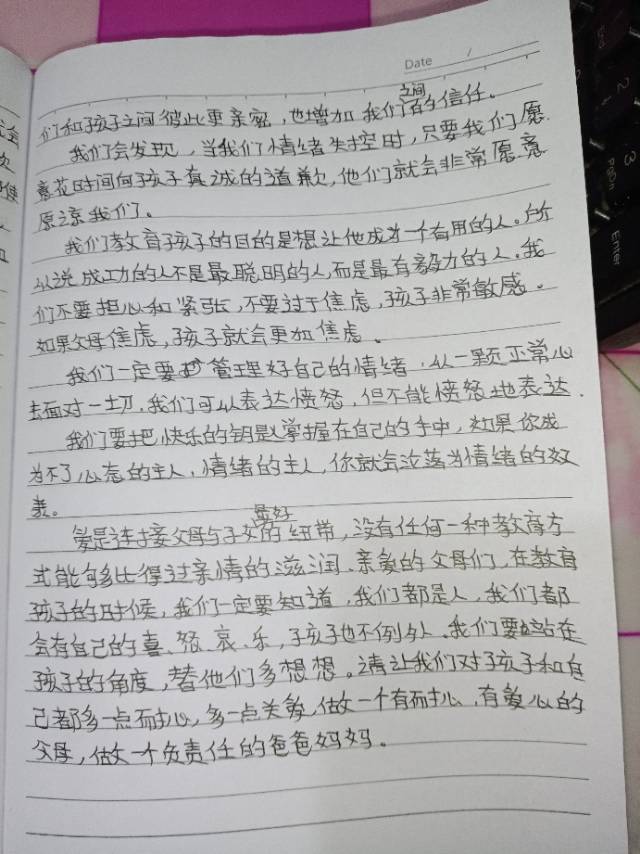 Date /
之间
们和孩子之间彼此更亲密，也增加我们的信任。
我们会发现，当我们情绪失控时，只要我们愿
意花时间向孩子真诚的道歉，他们就会非常愿意
原谅我们。
我们教育孩子的目的是想让他成为一个有用的人。所
以说成功的人不是最聪明的人，而是最有毅力的人。我
们不要担心和紧张，不要过于焦虑，孩子非常敏感。
如果父母焦虑，孩子就会更加焦虑。
我们一定要管理好自己的情绪，以一颗正常心
去面对一切，我们可以表达愤怒，但不能愤怒地表达。
我们要把快乐的钥匙掌握在自己的手中，如果你成
为不了心态的主人，情绪的主人，你就会沦落为情绪的奴
隶。
最好
爱是连接父母与子女的纽带，没有任何一种教育方
式能够比得过亲情的滋润、亲爱的父母们，在教育
孩子的时候，我们一定要知道，我们都是人，我们都
会有自己的喜、怒、哀、乐，孩子也不例外、我们要站在
孩子的角度，替他们多想想。请让我们对孩子和自
己都多一点耐心，多一点关爱，做一个有耐心，有爱心的
父母，做一个负责任的爸爸妈妈。
Enter
PgDn
3
2